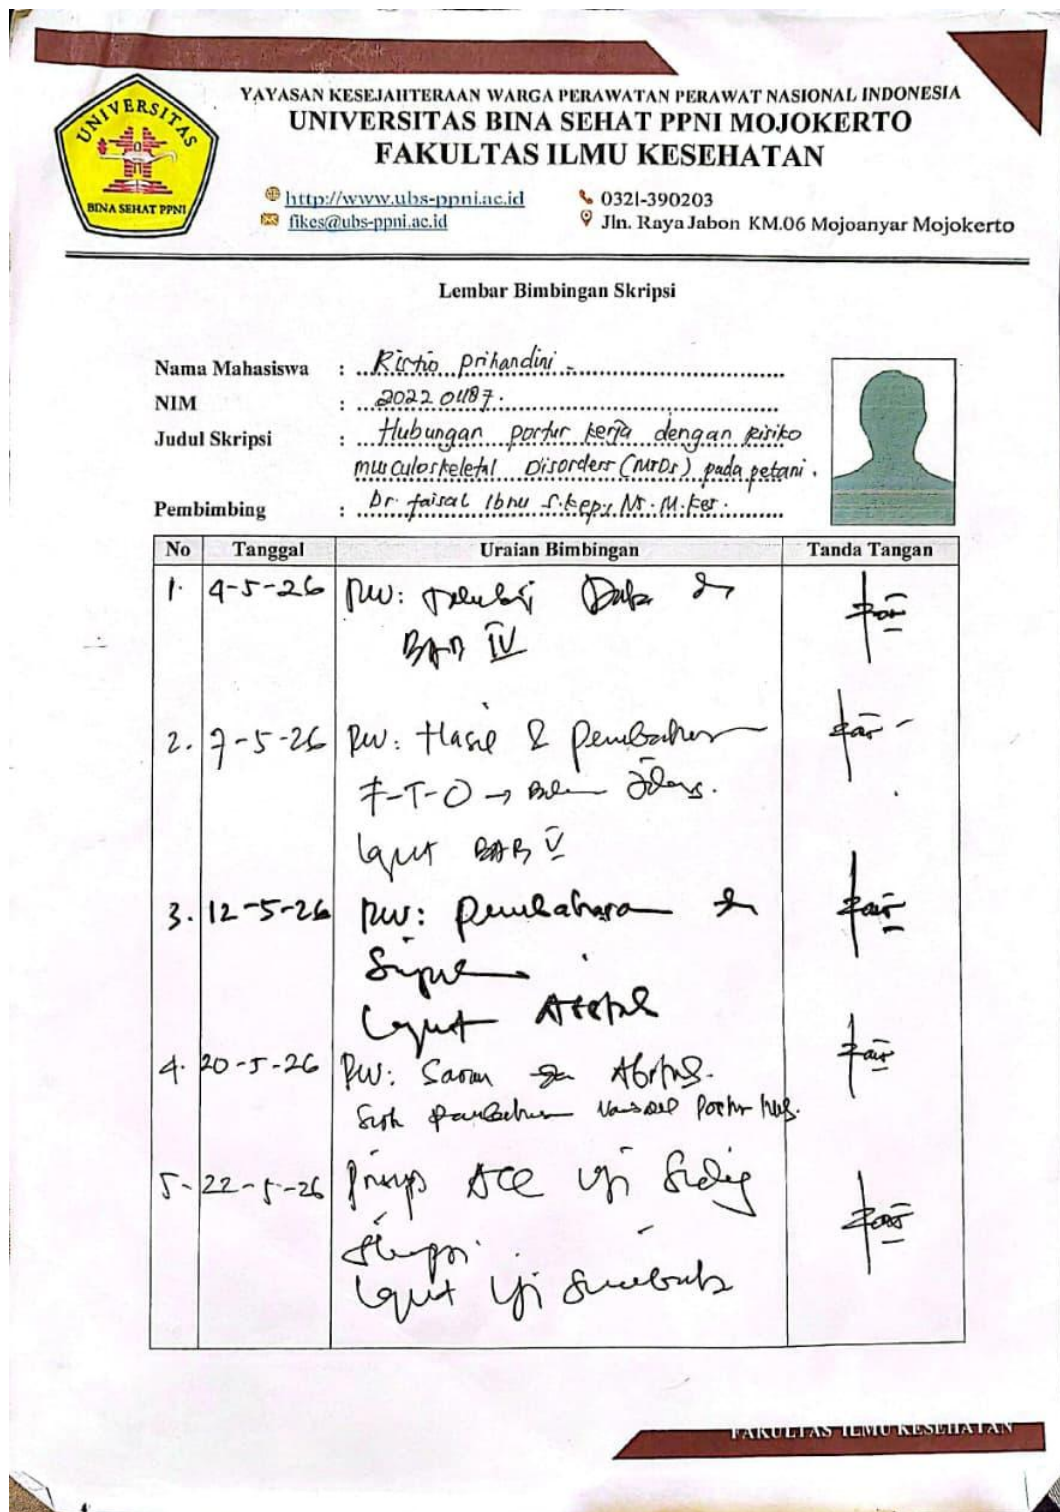 UNIVERSITAS
BINA SEHAT PPNI
YAYASAN KESEJAHTERAAN WARGA PERAWATAN PERAWAT NASIONAL INDONESIA
UNIVERSITAS BINA SEHAT PPNI MOJOKERTO
FAKULTAS ILMU KESEHATAN
http://www.ubs-ppni.ac.id 0321-390203
fikes@ubs-ppni.ac.id Jln. Raya Jabon KM.06 Mojoanyar Mojokerto
Lembar Bimbingan Skripsi
Nama Mahasiswa : Prihandini
NIM :
Judul Skripsi : Hubungan postur kerja dengan Risiko
musculoskeletal Disorders (MSDs) pada petani.
Pembimbing : Dr. faisal Ibnu S.Kep., Ns. M.Kes.
No Tanggal Uraian Bimbingan Tanda Tangan
1. 4-5-26 Rev: Data
BAB IV
2. 7-5-26 Rev: Hasil & Pembahasan
F-T-O →
Lanjut BAB V
3. 12-5-26 Rev: Pembahasan
Lanjut
4. 20-5-26 Rev: Saran
5. 22-5-26 ACC Uji Sidang
Skripsi
Lanjut Uji
FAKULTAS ILMU KESEHATAN